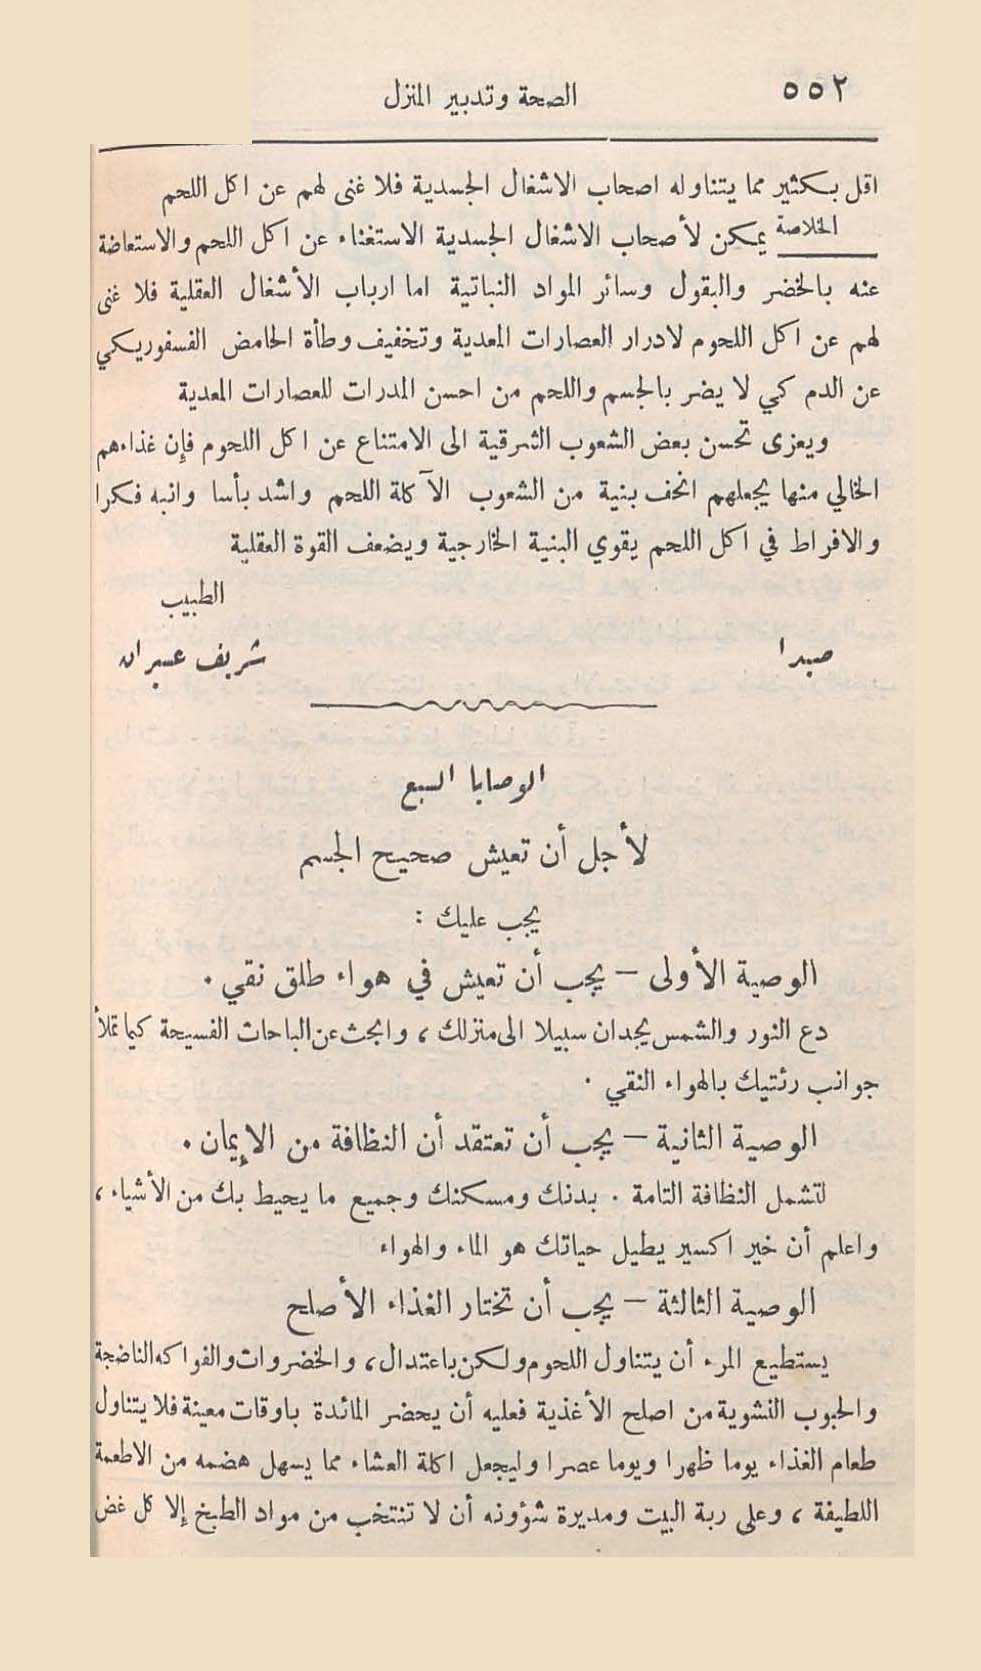 ٥٥٢
الصحة وتدبير المنزل
اقل بكثير مما يتناوله اصحاب الاشغال الجسدية فلا غنى لهم عن اكل اللحم
الخلاصة يمكن لأصحاب الاشغال الجسدية الاستغناء عن اكل اللحم والاستعاضة
عنه بالخضر والبقول وسائر المواد النباتية اما ارباب الأشغال العقلية فلا غنى
لهم عن اكل اللحوم لادرار العصارات المعدية وتخفيف وطأة الحامض الفسفوريكي
عن الدم كي لا يضر بالجسم واللحم من احسن المدرات للعصارات المعدية
ويعزى تحسن بعض الشعوب الشرقية الى الامتناع عن اكل اللحوم فإن غذاءهم
الخالي منها يجعلهم انحف بنية من الشعوب الآكلة اللحم واشد بأسا وانبه فكرا
والافراط في اكل اللحم يقوي البنية الخارجية ويضعف القوة العقلية
الطبيب
صيدا شريف عسيران
الوصايا السبع
لأجل أن تعيش صحيح الجسم
يجب عليك :
الوصية الأولى – يجب أن تعيش في هواء طلق نقي .
دع النور والشمس يجدان سبيلا الى منزلك ، وابحث عن الباحات الفسيحة كيما تملأ
جوانب رئتيك بالهواء النقي .
الوصية الثانية – يجب أن تعتقد أن النظافة من الإيمان .
لتشمل النظافة التامة . بدنك ومسكنك وجميع ما يحيط بك من الأشياء ،
واعلم أن خير اكسير يطيل حياتك هو الماء والهواء
الوصية الثالثة – يجب أن تختار الغذاء الأصلح
يستطيع المرء أن يتناول اللحوم ولكن باعتدال ، والخضروات والفواكه الناضجة
والحبوب النشوية من اصلح الأغذية فعليه أن يحضر المائدة باوقات معينة فلا يتناول
طعام الغذاء يوما ظهرا ويوما عصرا وليجعل اكلة العشاء مما يسهل هضمه من الاطعمة
اللطيفة ، وعلى ربة البيت ومديرة شؤونه أن لا تنتخب من مواد الطبخ إلا كل غض